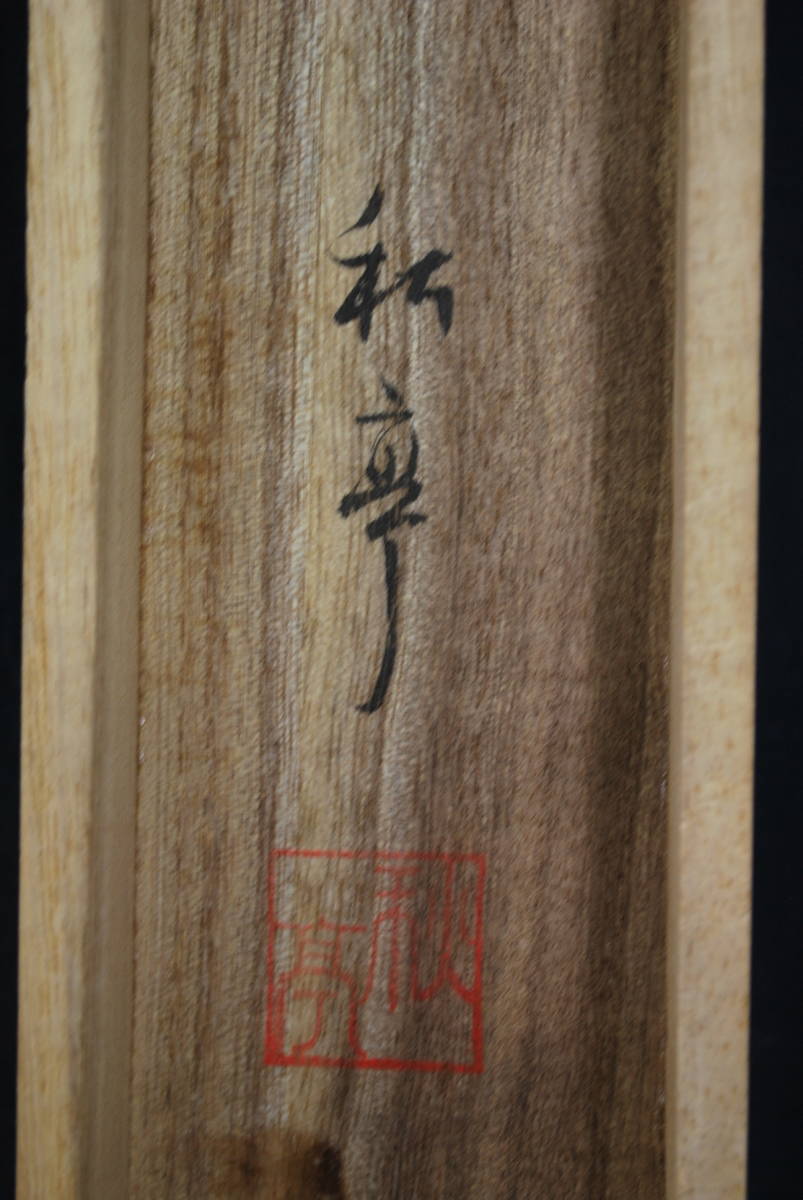 秋亭
秋亭